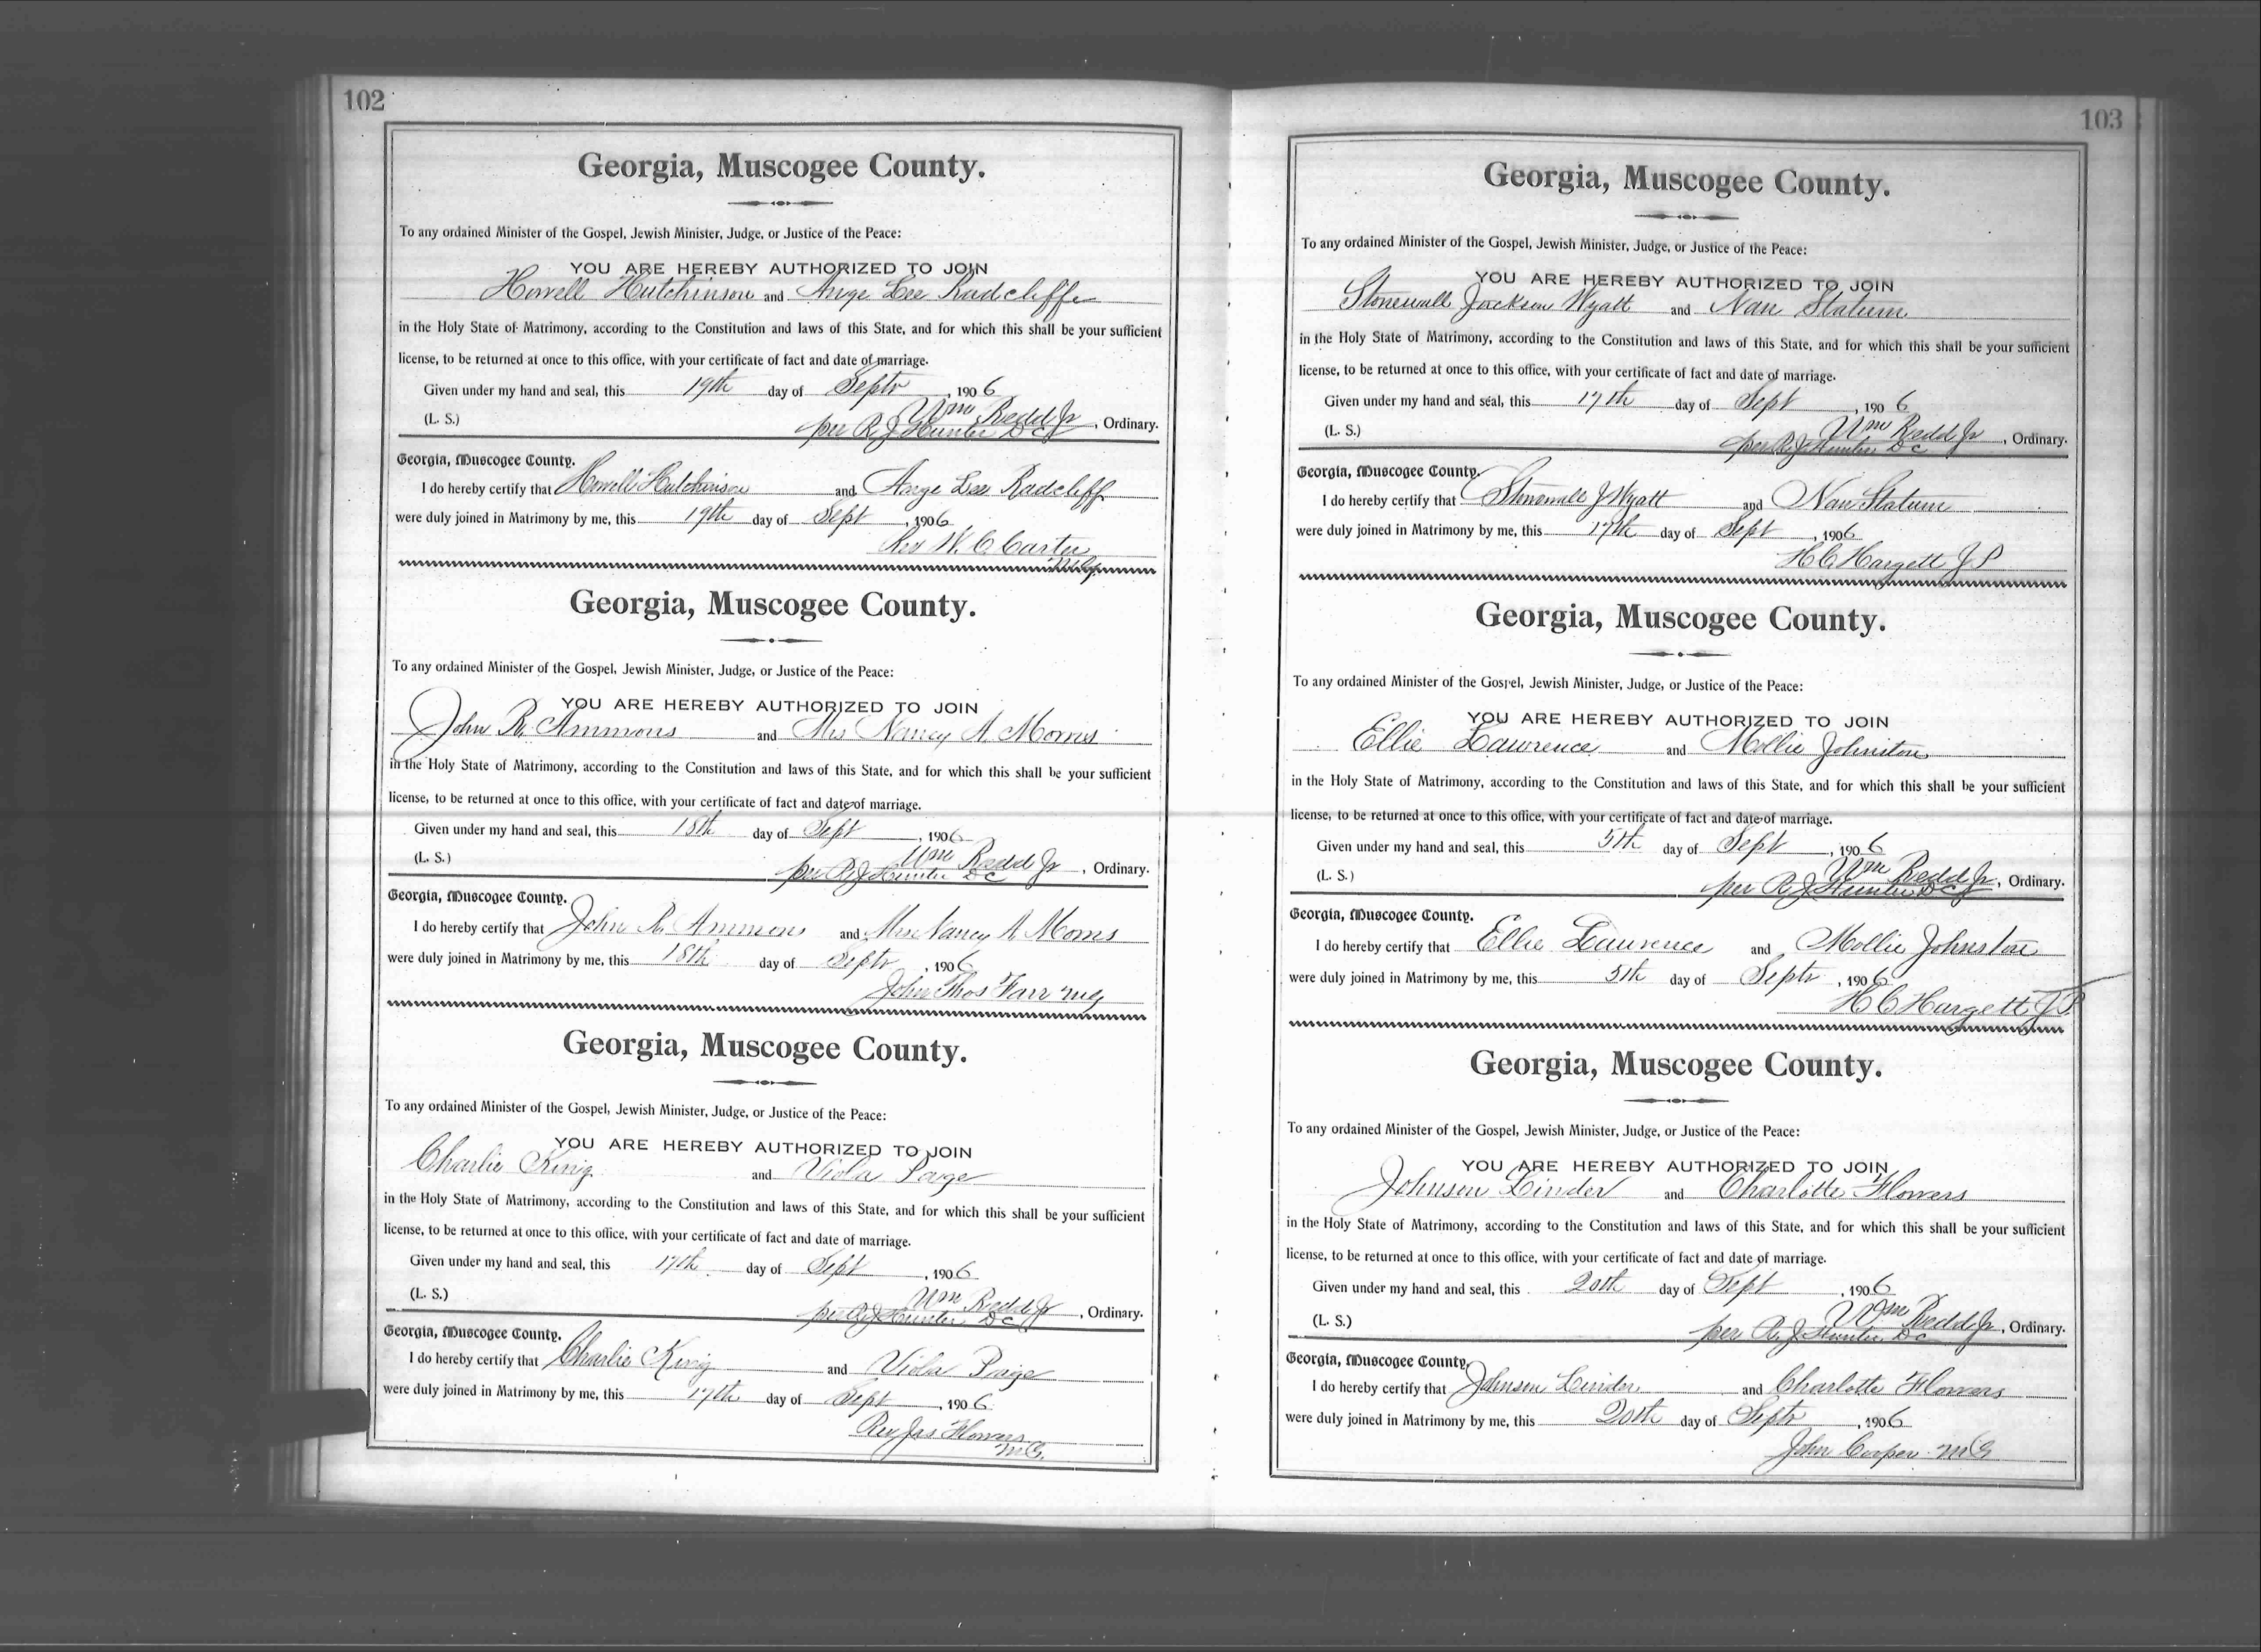 102
Georgia, Muscogee County.
To any ordained Minister of the Gospel, Jewish Minister, Judge, or Justice of the Peace:
YOU ARE HEREBY AUTHORIZED TO JOIN
Howell Hutchinson and Ange Lee Radcliffe
in the Holy State of Matrimony, according to the Constitution and laws of this State, and for which this shall be your sufficient
license, to be returned at once to this office, with your certificate of fact and date of marriage.
Given under my hand and seal, this 19th day of Septr, 1906
(L. S.) Wm Redd Jr, Ordinary.
per R J Hunter DC
Georgia, Muscogee County.
I do hereby certify that Howell Hutchinson and Ange Lee Radcliff
were duly joined in Matrimony by me, this 19th day of Sept, 1906
Rev W. C Carter
M.G.
Georgia, Muscogee County.
To any ordained Minister of the Gospel, Jewish Minister, Judge, or Justice of the Peace:
YOU ARE HEREBY AUTHORIZED TO JOIN
John R. Ammons and Mrs Nancy A. Morris
in the Holy State of Matrimony, according to the Constitution and laws of this State, and for which this shall be your sufficient
license, to be returned at once to this office, with your certificate of fact and date of marriage.
Given under my hand and seal, this 18th day of Sept, 1906
(L. S.) Wm Redd Jr, Ordinary.
per R J Hunter DC
Georgia, Muscogee County.
I do hereby certify that John R. Ammons and Mrs Nancy A Morris
were duly joined in Matrimony by me, this 18th day of Septr, 1906
John Thos Farr MG
Georgia, Muscogee County.
To any ordained Minister of the Gospel, Jewish Minister, Judge, or Justice of the Peace:
YOU ARE HEREBY AUTHORIZED TO JOIN
Charlie King and Viola Paige
in the Holy State of Matrimony, according to the Constitution and laws of this State, and for which this shall be your sufficient
license, to be returned at once to this office, with your certificate of fact and date of marriage.
Given under my hand and seal, this 17th day of Sept, 1906
(L. S.) Wm Redd Jr, Ordinary.
per R J Hunter DC
Georgia, Muscogee County.
I do hereby certify that Charlie King and Viola Paige
were duly joined in Matrimony by me, this 17th day of Sept, 1906
Rev Jas Flowers
M.G.
103
Georgia, Muscogee County.
To any ordained Minister of the Gospel, Jewish Minister, Judge, or Justice of the Peace:
YOU ARE HEREBY AUTHORIZED TO JOIN
Stonewall Jackson Wyatt and Nan Statum
in the Holy State of Matrimony, according to the Constitution and laws of this State, and for which this shall be your sufficient
license, to be returned at once to this office, with your certificate of fact and date of marriage.
Given under my hand and seal, this 17th day of Sept, 1906
(L. S.) Wm Redd Jr, Ordinary.
per R J Hunter DC
Georgia, Muscogee County.
I do hereby certify that Stonewall J Wyatt and Nan Statum
were duly joined in Matrimony by me, this 17th day of Sept, 1906
H C Hargett J P
Georgia, Muscogee County.
To any ordained Minister of the Gospel, Jewish Minister, Judge, or Justice of the Peace:
YOU ARE HEREBY AUTHORIZED TO JOIN
Ellie Lawrence and Mollie Johnston
in the Holy State of Matrimony, according to the Constitution and laws of this State, and for which this shall be your sufficient
license, to be returned at once to this office, with your certificate of fact and date of marriage.
Given under my hand and seal, this 5th day of Sept, 1906
(L. S.) Wm Redd Jr, Ordinary.
per R J Hunter DC
Georgia, Muscogee County.
I do hereby certify that Ellie Lawrence and Mollie Johnston
were duly joined in Matrimony by me, this 5th day of Septr, 1906
H C Hargett J P
Georgia, Muscogee County.
To any ordained Minister of the Gospel, Jewish Minister, Judge, or Justice of the Peace:
YOU ARE HEREBY AUTHORIZED TO JOIN
Johnson Linder and Charlotte Flowers
in the Holy State of Matrimony, according to the Constitution and laws of this State, and for which this shall be your sufficient
license, to be returned at once to this office, with your certificate of fact and date of marriage.
Given under my hand and seal, this 20th day of Sept, 1906
(L. S.) Wm Redd Jr, Ordinary.
per R. J Hunter DC
Georgia, Muscogee County.
I do hereby certify that Johnson Linder and Charlotte Flowers
were duly joined in Matrimony by me, this 20th day of Septr, 1906
John Cooper MG